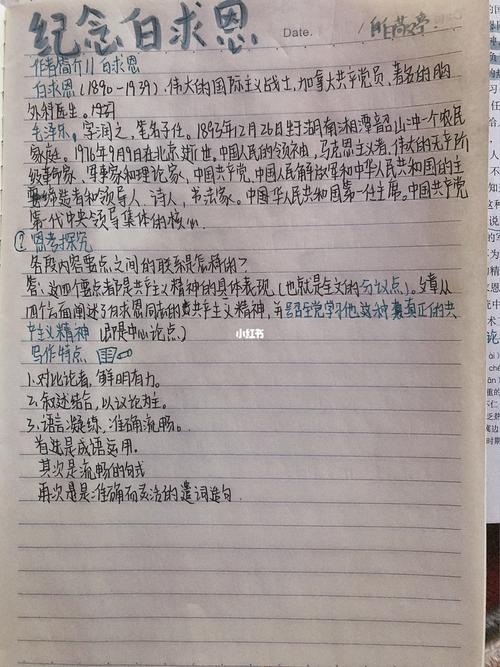 纪念白求恩
Date.
作者简介 // 白求恩
白求恩(1890-1939),伟大的国际主义战士,加拿大共产党员,著名的胸
外科医生。
毛泽东,字润之,笔名子任。1893年12月26日生于湖南湘潭韶山冲一个农民
家庭。1976年9月9日在北京逝世。中国人民的领袖,马克思主义者,伟大的无产阶
级革命家、军事家和理论家、中国共产党,中国人民解放军和中华人民共和国的主
要缔造者和领导人,诗人,书法家。中国华人民共和国第一任主席。中国共产党
第一代中央领导集体的核心。
① 思考探究
各段内容要点之间的联系是怎样的?
答:这四个要点都是共产主义精神的具体表现,(也就是全文的分议点)。文章从
四个方面阐述了白求恩同志的共产主义精神,并号召党学习他这种真正的共
产主义精神 (即是中心论点。)
写作特点
1.对比论者,鲜明有力。
2.叙述结合,以议论为主。
3.语言凝练,准确流畅。
首先是成语运用。
其次是流畅的句式
再次是准确而灵活的遣词造句.
小红书